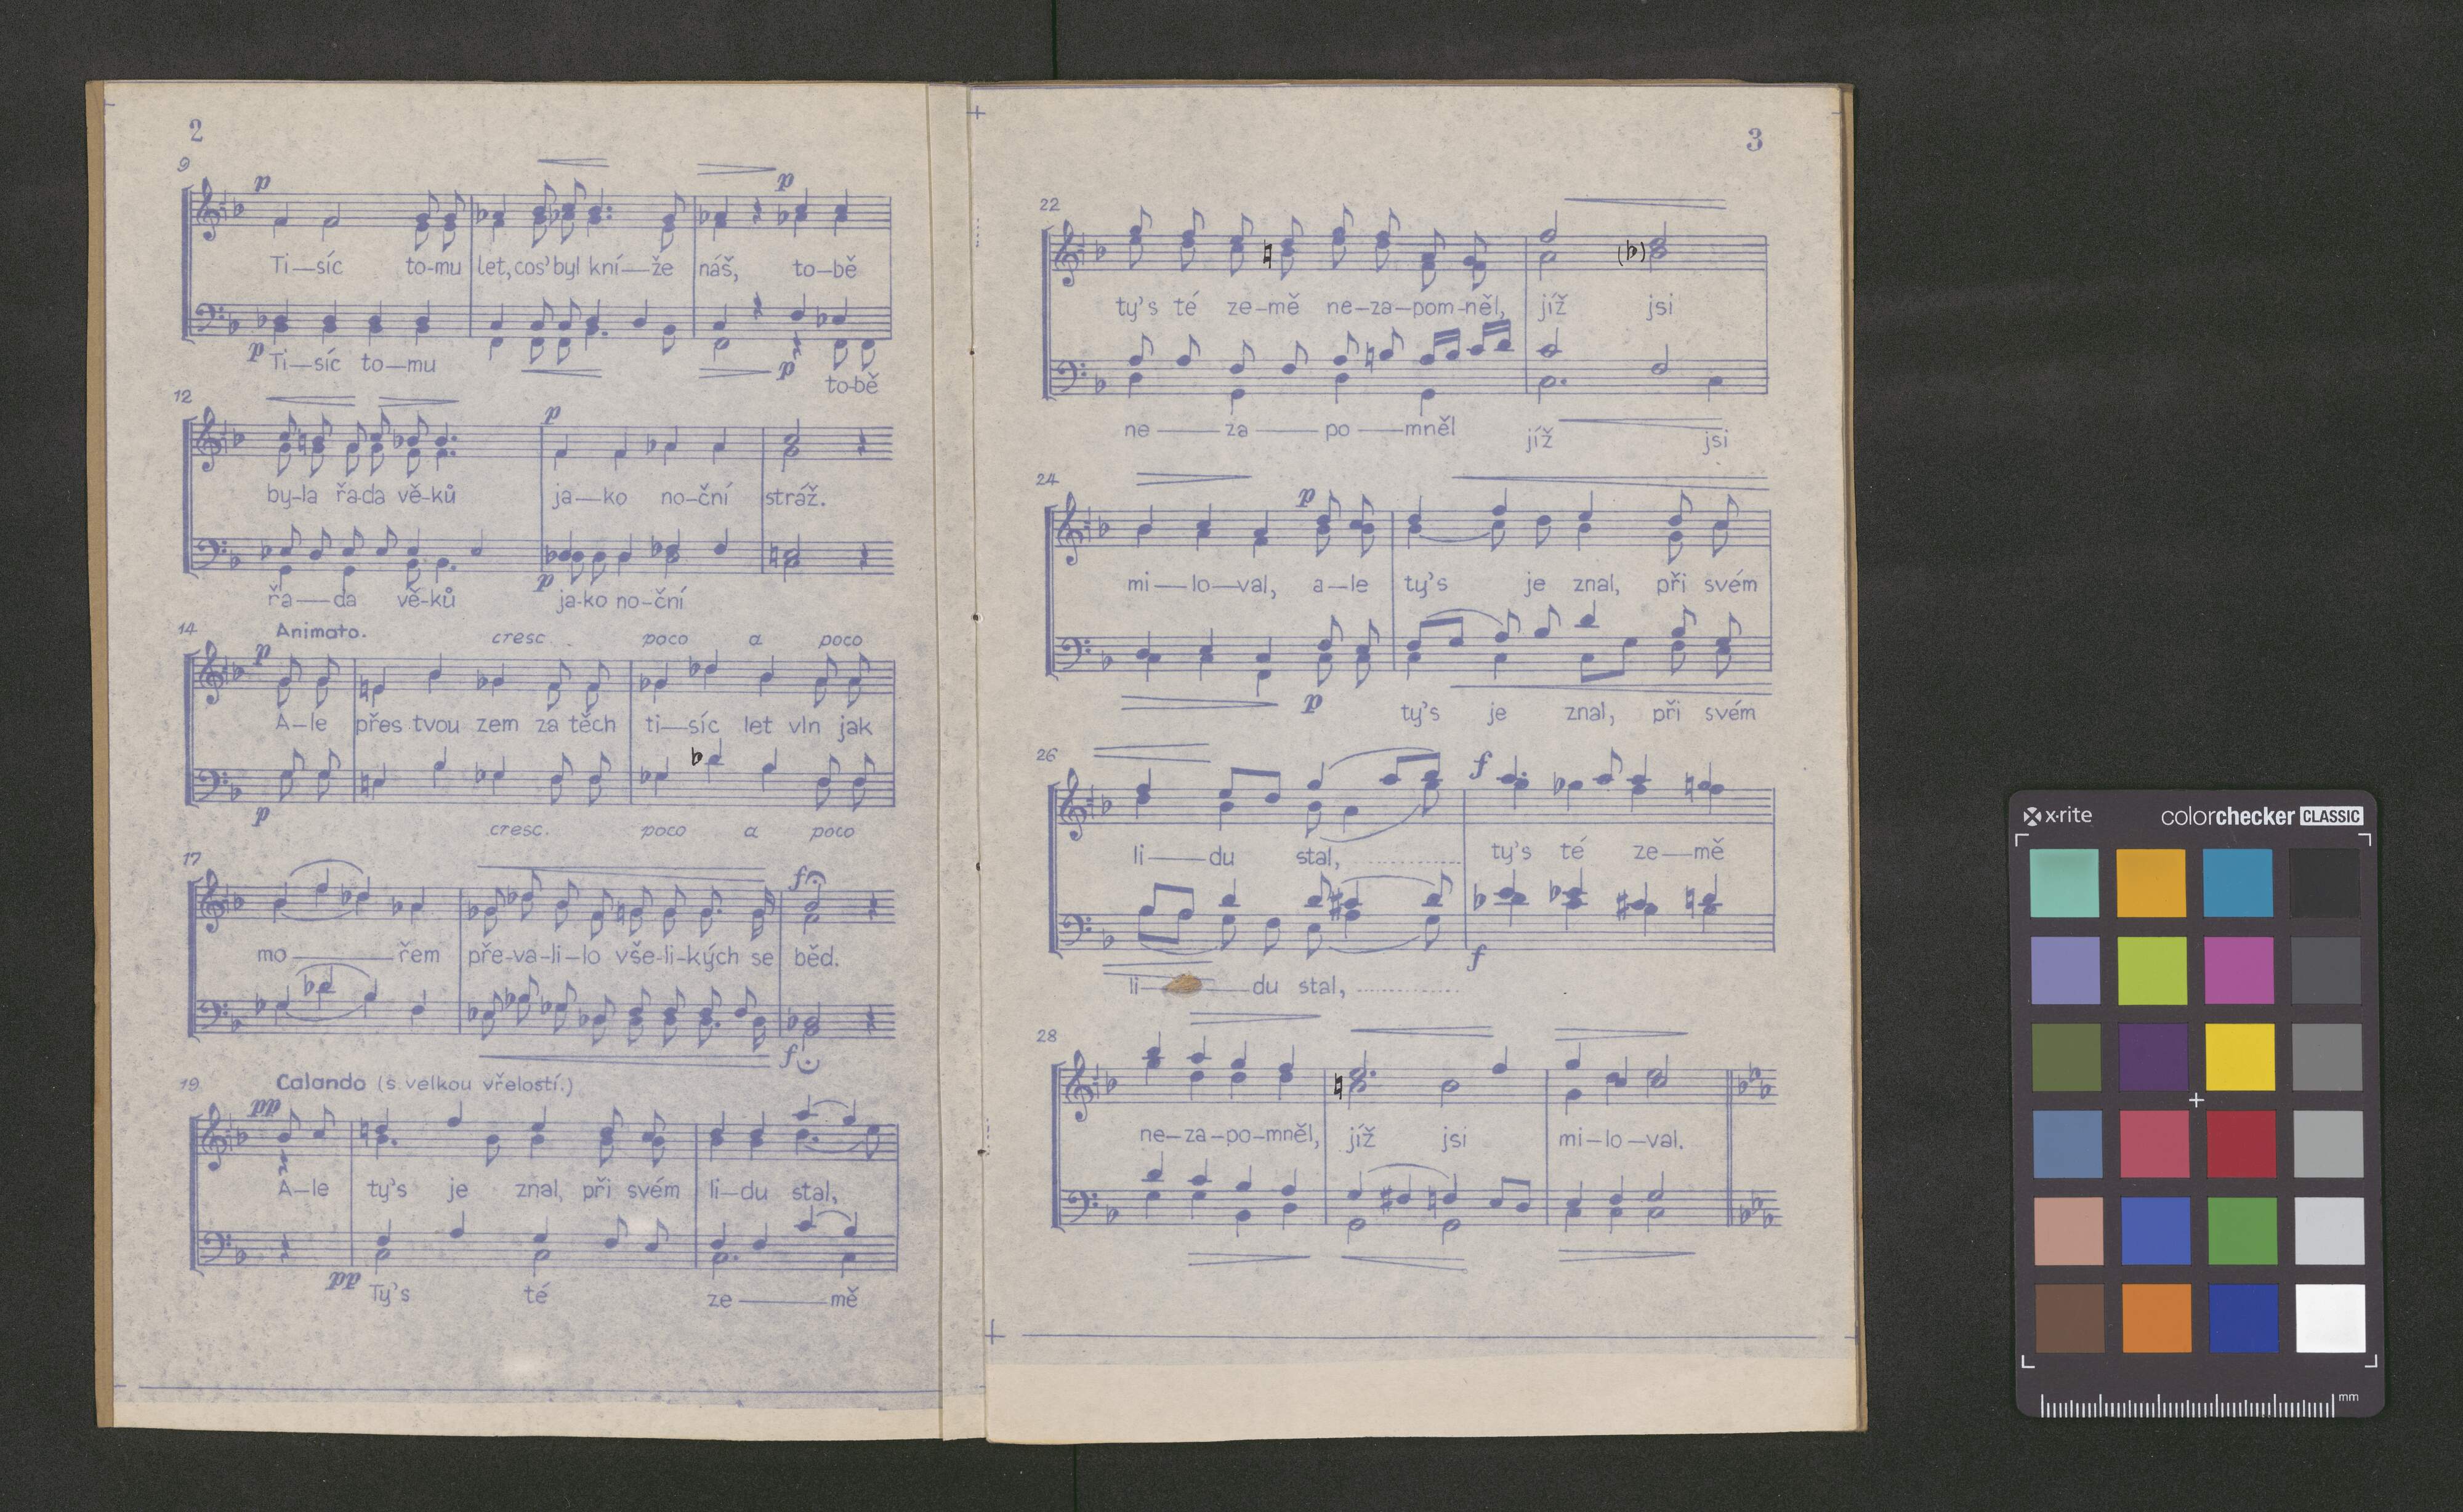 2
9
p
p
Ti—síc to-mu let, cos' byl kní—že náš, to—bě
p Ti—síc to—mu
p
to-bě
12
p
by-la řa-da vě-ků ja—ko no-ční stráž.
p
řa—da vě-ků ja-ko no-ční
14 Animato. cresc. poco a poco
p
A-le přes tvou zem za těch ti—síc let vln jak
p
cresc. poco a poco
17
f
mo——řem pře-va-li-lo vše-li-kých se běd.
f
19 Calando (s velkou vřelostí.)
pp
A-le ty's je znal, při svém li-du stal,
pp Ty's té ze——mě
3
22
(♭)
ty's té ze-mě ne-za-pom-něl, jíž jsi
ne——za——po——mněl jíž jsi
24
p
mi—lo—val, a—le ty's je znal, při svém
p
ty's je znal, při svém
26
f
li——du stal, .............. ty's té ze—mě
f
li———du stal, ..............
28
ne-za-po-mněl, jíž jsi mi-lo-val.
x·rite colorchecker CLASSIC
mm